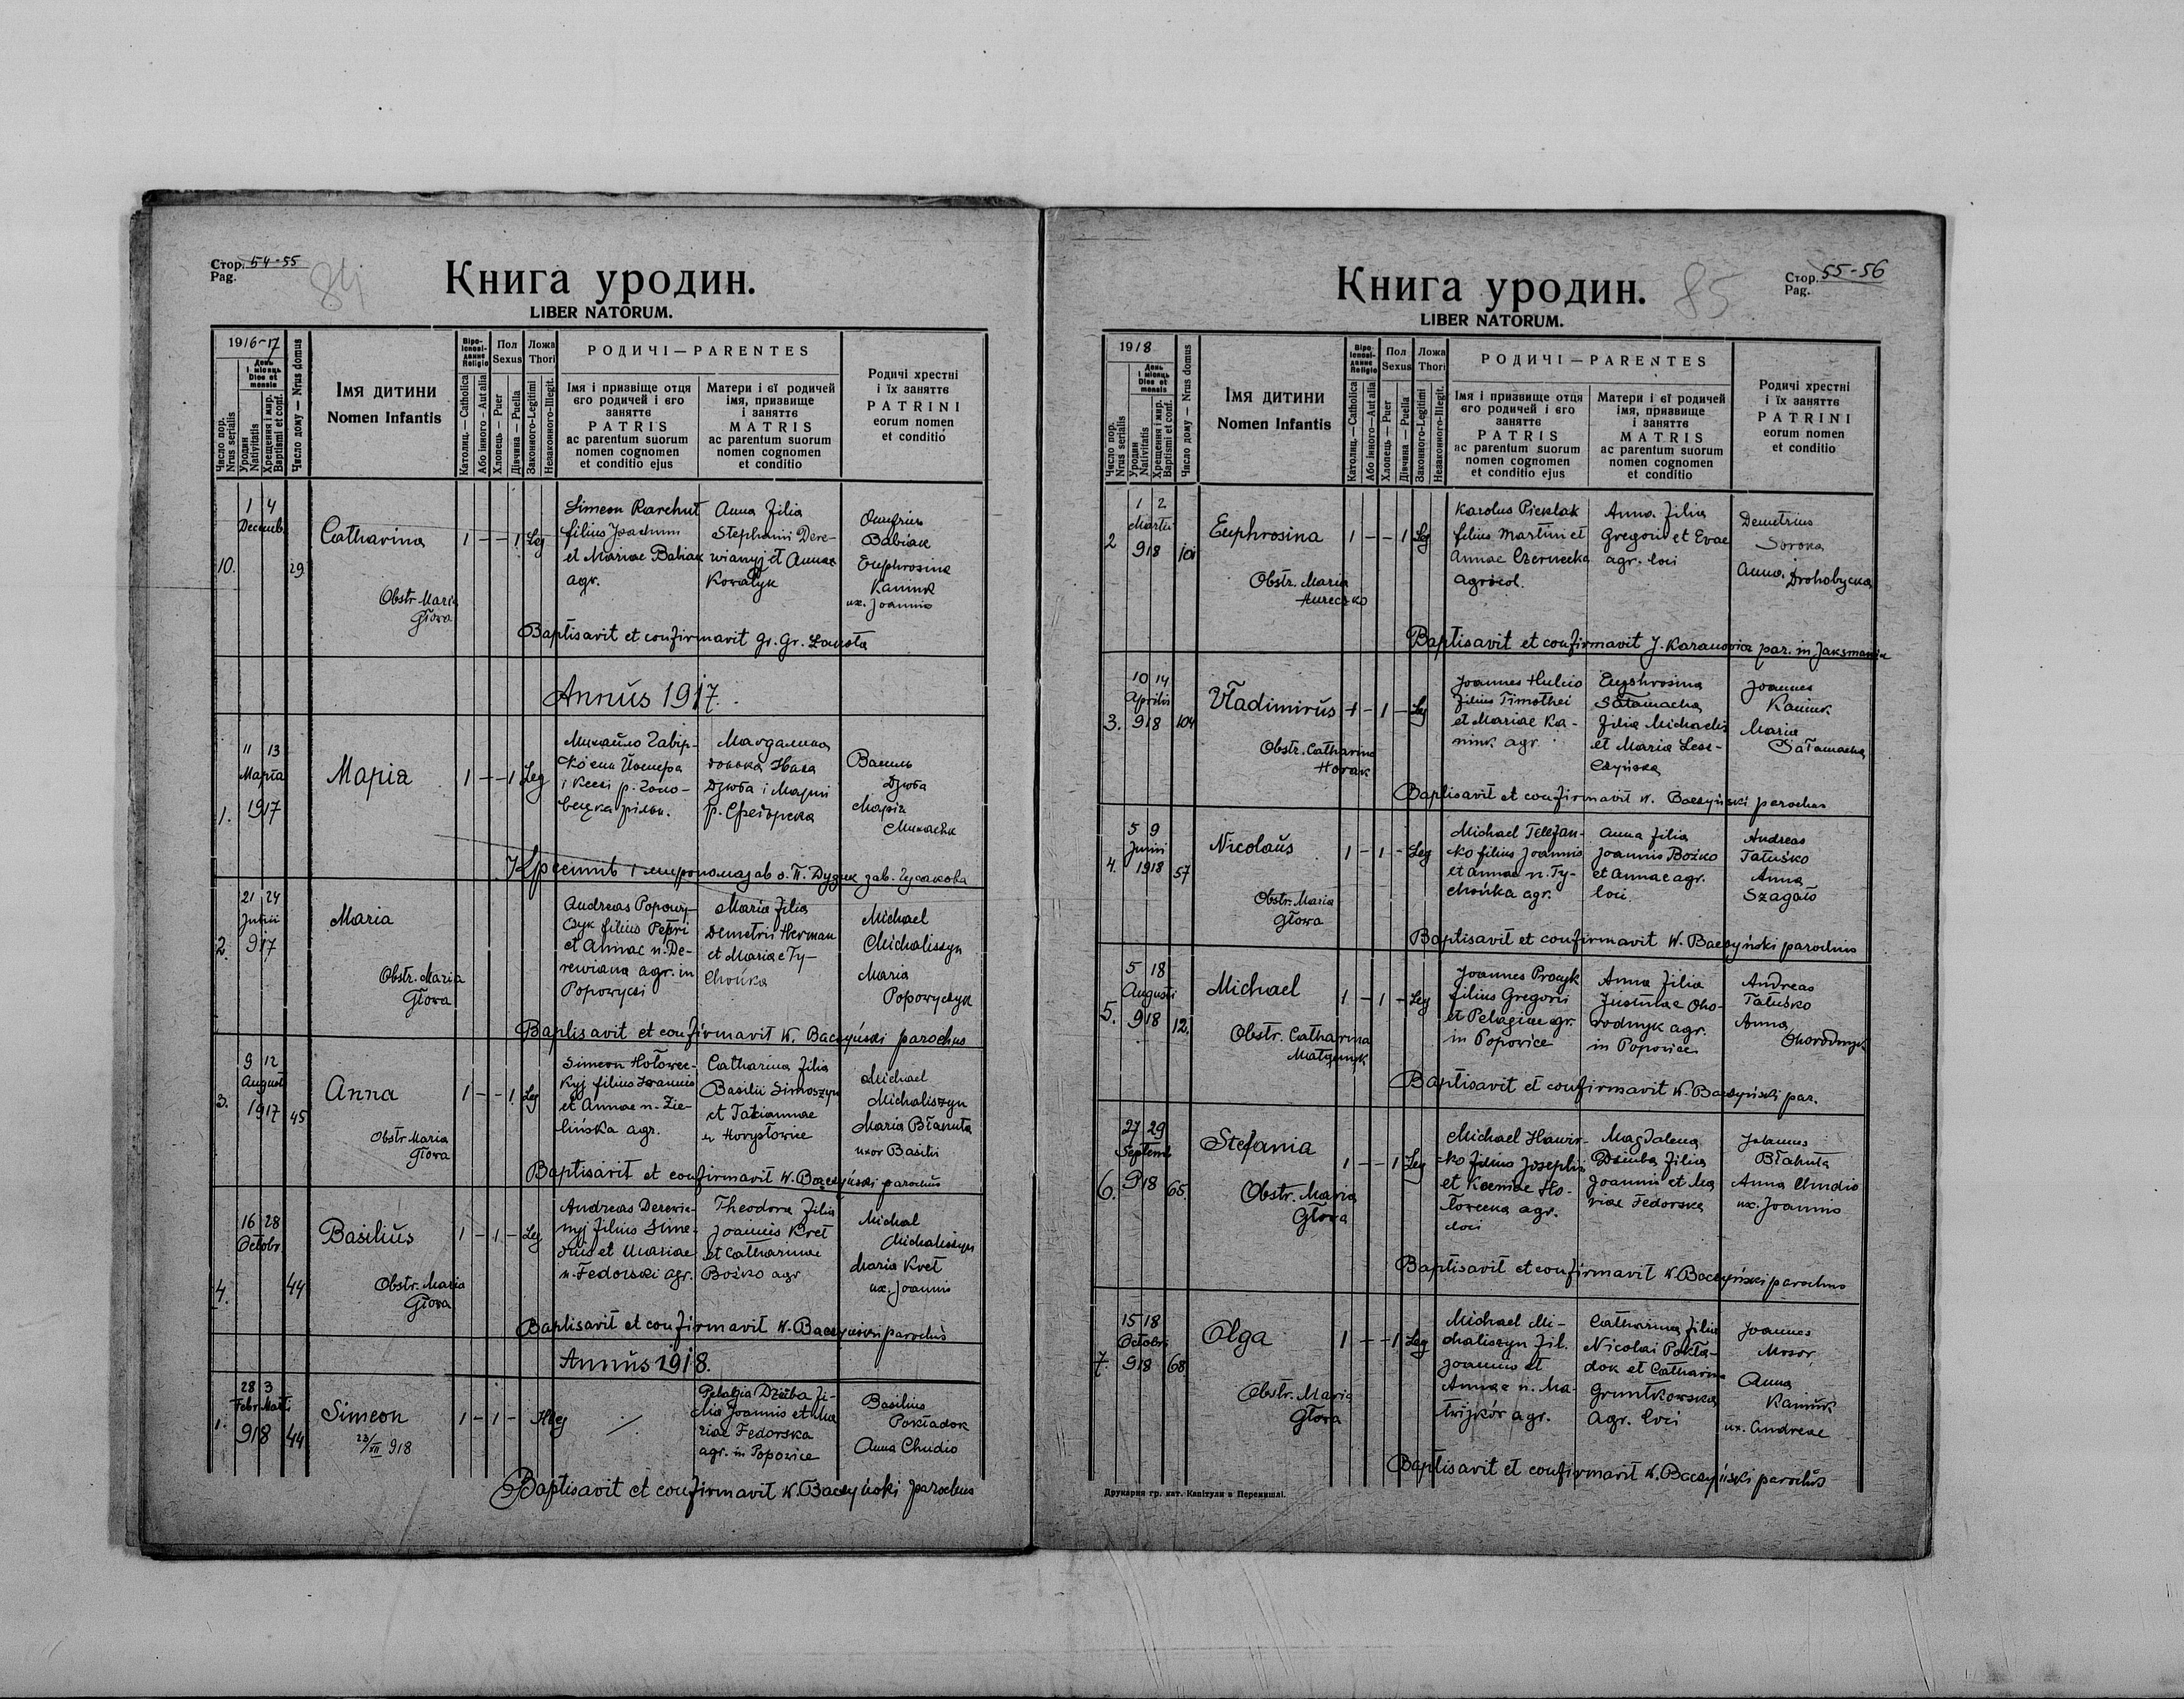 Стор. 54-55
Pag.
84
Книга уродин.
LIBER NATORUM.
1916-17
День і місяць
Dies et mensis
Число пор.
Nrus serialis
Уродин
Nativitatis
Хрещення і мир.
Baptismi et conf.
Число дому — Nrus domus
Імя дитини
Nomen Infantis
Віроісповідание
Religio
Католиц. — Catholica
Або інного — Aut alia
Пол
Sexus
Хлопець — Puer
Дівчина — Puella
Ложа
Thori
Законного-Legitimi
Незаконного-Illegit.
РОДИЧІ — PARENTES
Імя і призвіще отця
єго родичей і єго
заняттє
PATRIS
ac parentum suorum
nomen cognomen
et conditio ejus
Матери і єї родичей
імя, призвище
і заняттє
MATRIS
ac parentum suorum
nomen cognomen
et conditio
Родичі хрестні
і їх заняттє
PATRINI
eorum nomen
et conditio
10.
1 4
Decemb.
29
Catharina
Obstr. Maria
Głowa
1 — — 1 Leg
Simeon Rarehut
filius Joachim
et Mariae Babiak
agr.
Anna filia
Stephani Dere-
wianyj et Annae
Kowalyk
Onufrius
Babiak
Euphrosina
Kaniuk
ux. Joannis
Baptisavit et confirmavit Gr. Gr.
Annus 1917.
1.
11 13
Марта
1917
Марія
1 — — 1 Leg
Михайло Гавір-
ко син Йосифа
і Ксені р. Голо-
вецка рільн.
Магдалина
донька Івана
Дзюба і Марії
р. Федорска
Василь
Дзюба
Марія
Хрестив і миропомазав о. П. Дудик зав. Гусакова
2.
21 24
Junii
917
Maria
Obstr. Maria
Głowa
Andreas Popowy-
czyk filius Petri
et Annae n. De-
rewiana agr. in
Popowyci
Maria filia
Demetrii Herman
et Mariae Ty-
chońka
Michael
Michaliszyn
Maria
Popowyczyk
Baptisavit et confirmavit W. Baczyński parochus
3.
9 12
August
1917
45
Anna
Obstr. Maria
Głowa
1 — — 1 Leg
Simeon Hołowec-
kyj filius Joannis
et Annae n. Zie-
lińska agr.
Catharina filia
Basilii Simoszyn
et Tatiannae
Horysłowice
Michael
Michaliszyn
Maria Błahuta
uxor Basilii
Baptisavit et confirmavit W. Baczyński parochus
4.
16 28
Octobr.
44
Basilius
Obstr. Maria
Głowa
1 — 1 — Leg
Andreas Derewia-
nyj filius Sime-
onis et Mariae
n. Fedorski agr.
Theodora filia
Joannis Kret
et Catharinae
Bośko agr
Michal
Michaliszyn
Maria Kret
ux. Joannis
Baptisavit et confirmavit W. Baczyński parochus
Annus 1918.
1.
28 3
Febr. Marti
918
44
Simeon
23/VII 918
1 — 1 — Illeg
Pelagia Dziuba fi-
lia Joannis et Ma
riae Fedorska
agr. in Popowice
Basilius
Pokładok
Anna Chudio
Baptisavit et confirmavit W. Baczyński parochus
Стор. 55-56
Pag.
85
Книга уродин.
LIBER NATORUM.
1918
День і місяць
Dies et mensis
Число пор.
Nrus serialis
Уродин
Nativitatis
Хрещення і мир.
Baptismi et conf.
Число дому — Nrus domus
Імя дитини
Nomen Infantis
Віроісповідание
Religio
Католиц. — Catholica
Або інного — Aut alia
Пол
Sexus
Хлопець — Puer
Дівчина — Puella
Ложа
Thori
Законного-Legitimi
Незаконного-Illegit.
РОДИЧІ — PARENTES
Імя і призвище отця
єго родичей і єго
заняттє
PATRIS
ac parentum suorum
nomen cognomen
et conditio ejus
Матери і єї родичей
імя, призвище
і заняттє
MATRIS
ac parentum suorum
nomen cognomen
et conditio
Родичі хрестні
і їх заняттє
PATRINI
eorum nomen
et conditio
2
1 2
Martii
918
101
Euphrosina
Obstr. Maria
Hureczko
1 — — 1 Leg
Karolus Pieklak
filius Martini et
Annae Czernecka
agricol.
Anna filia
Gregorii et Evae
agr. loci
Demetrius
Soroka
Anna Drohobycka
Baptisavit et confirmavit J. Karanowicz par. in Jaksmanice
3.
10 14
Aprilis
918
104
Vładimirus
Obstr. Catharina
Horak
1 — 1 — Leg
Joannes Hulio
filius Timothei
et Mariae Ka-
niuk agr.
Euphrosina
Sałamacha
filia Michaelis
et Maria Lesz-
czyńska
Joannes
Kaniuk
Maria
Sałamacha
Baptisavit et confirmavit W. Baczyński parochus
4.
5 9
Junii
1918
57
Nicolaus
Obstr. Maria
Głowa
1 — 1 — Leg
Michael Telefan-
ko filius Joannis
et Annae n. Ty-
chońka agr.
Anna filia
Joannis Bośko
et Annae agr.
loci
Andreas
Tatuśko
Anna
Szagało
Baptisavit et confirmavit W. Baczyński parochus
5.
5 18
Augusti
918
12.
Michael
Obstr. Catharina
1 — 1 — Leg
Joannes Procyk
filius Gregorii
et Pelagiae agr.
in Popowice
Anna filia
Justinae Oho-
rodnyk agr.
in Popowice
Andreas
Tatuśko
Anna
Ohorodnyk
Baptisavit et confirmavit W. Baczyński par.
6.
27 29
Septemb
918
65.
Stefania
Obstr. Maria
Głowa
1 — — 1 Leg
Michael Hawir-
ko filius Josephi
et Kseniae Ho-
łowecka agr.
loci
Magdalena
Dziuba filia
Joannis et Ma
riae Fedorska
Johannes
Błahuta
Anna Chudio
ux. Joannis
Baptisavit et confirmavit W. Baczyński parochus
7.
15 18
Octobri
918
68
Olga
Obstr. Maria
Głowa
1 — — 1 Leg
Michael Mi-
chaliszyn fil.
Joannis et
Annae n. Ma-
twijków agr.
Catharina filia
Nicolai Pokła-
dok et Catharina
Gruntkowska
agr. loci
Joannes
Mosor
Anna
Kaniuk
ux. Andreae
Baptisavit et confirmavit W. Baczyński parochus
Друкарня гр. кат. Капітули в Перемишлі.